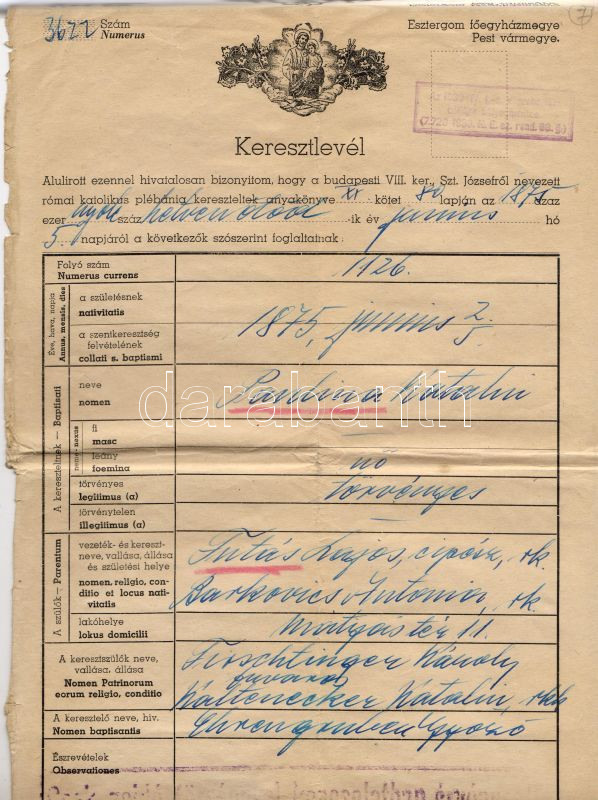 3622 Szám
Numerus
Esztergom főegyházmegye
Pest vármegye.
7
(7.720 1939. M. E. sz. rend. 69. §)
Keresztlevél
Alulirott ezennel hivatalosan bizonyitom, hogy a budapesti VIII. ker., Szt. Józsefről nevezett
római katolikus plébánia kereszteltek anyakönyve XX kötet 80 lapján az 1875 azaz
ezer nyolc száz hetvenötödik ik év június hó
5. napjáról a következők szószerint foglaltainak:
Folyó szám
Numerus currens
1126.
Éve, hava, napja
Annus, mensis, dies
a születésnek
nativitatis
a szentkeresztség
felvételének
collati s. baptismi
1875, június 2/5.
A kereszteltnek — Baptisati
neve
nomen
Paulina Katalin
neme - nexus
fi
masc
—
leány
foemina
nő
törvényes
legitimus (a)
törvényes
törvénytelen
illegitimus (a)
—
A szülők — Parentum
vezeték- és kereszt-
neve, vallása, állása
és születési helye
nomen, religio, con-
ditio et locus nati-
vitatis
Titás Lajos, cipész, rk.
Barkovics Antonia, rk.
lakóhelye
lokus domicilii
Mátyás tér 11.
A keresztszülők neve,
vallása, állása
Nomen Patrinorum
eorum religio, conditio
Firschtinger Károly
fuvaros
Kaltenecker Katalin, rkk
A keresztelő neve, hiv.
Nomen baptisantis
Ehrengruber Győző
Észrevételek
Observationes
darabanth